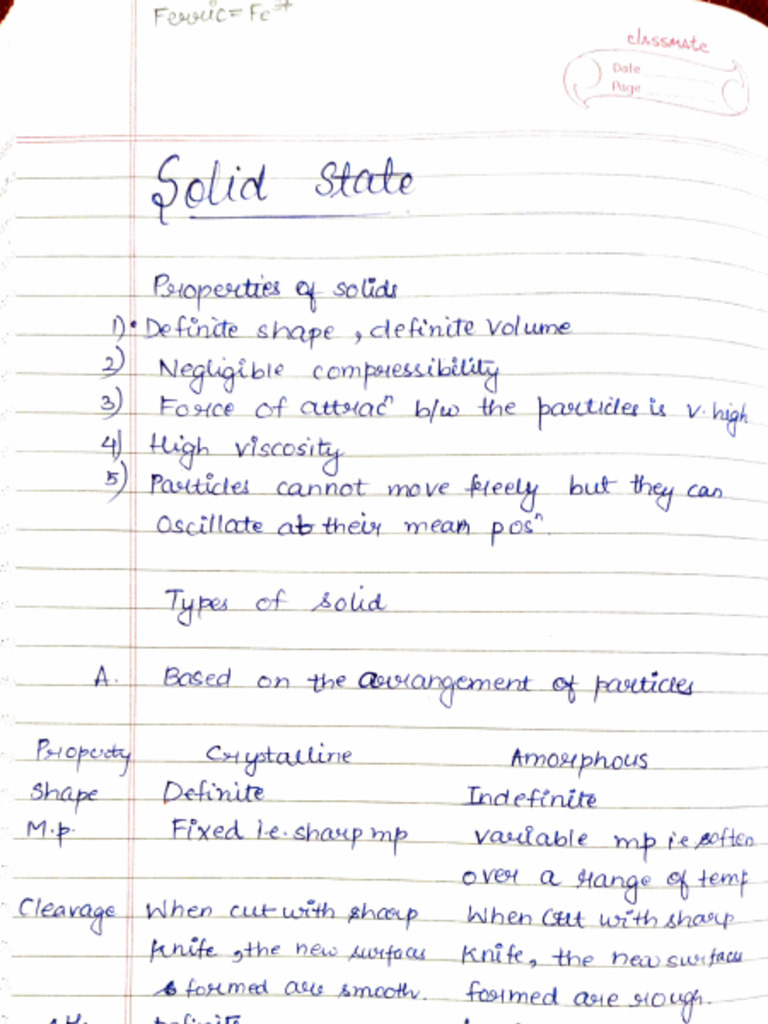 Ferric = Fe3+
classmate
Date
Page
Solid State
Properties of solids
1) • Definite shape, definite volume
2) Negligible compressibility
3) Force of attracⁿ b/w the particles is v. high
4) High viscosity
5) Particles cannot move freely but they can
Oscillate at their mean posⁿ
Types of solid
A. Based on the arrangement of particles
Property Crystalline Amorphous
Shape Definite Indefinite
M.p. Fixed i.e. sharp mp variable mp i.e soften
over a range of temp
Cleavage When cut with sharp When cut with sharp
knife, the new surfaces knife, the new surfaces
formed are smooth. formed are rough.